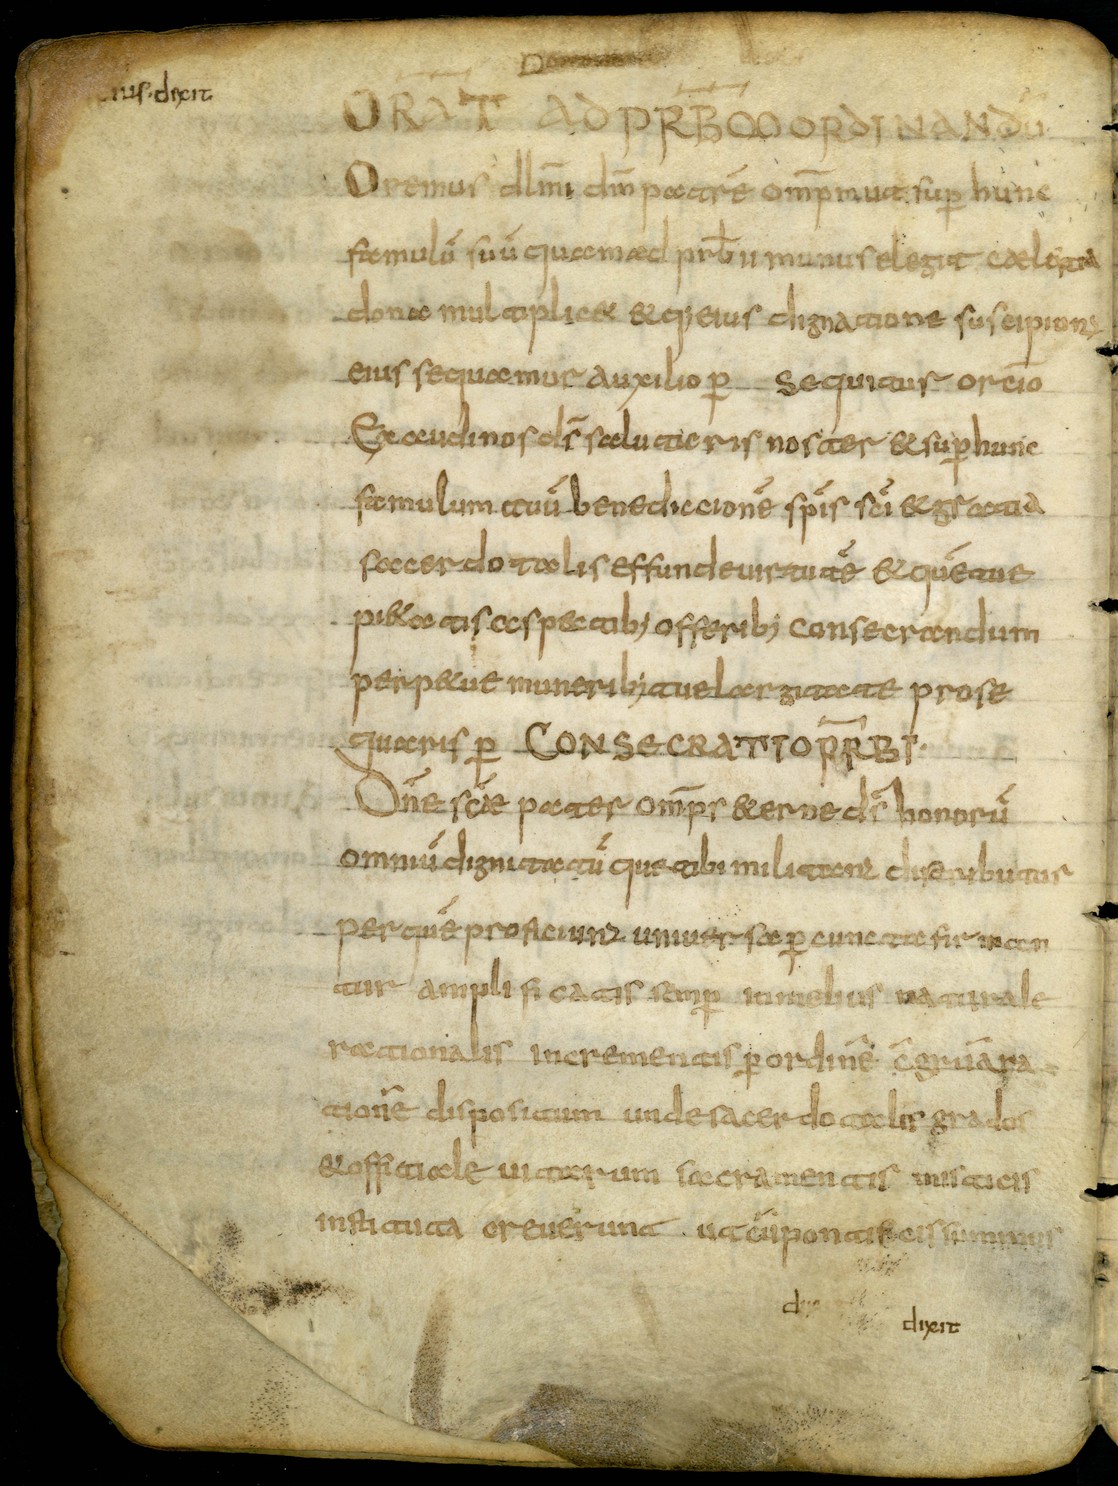 ius dixit
ORAT AD PR̅B̅ ORDINANDU̅
Oremus dll̅mi dm̅ patre̅ omp̅ ut sup̅ hunc
famulu̅ suu̅ quæm ad prb̅ii munus elegit caelestia
dona multiplicet & q; eius dignatione suscipiunt
eius sequamur auxilio p̅ sequitur oratio
Exaudi nos ds̅ salutaris noster & sup̅ hunc
famulum tuu̅ benediccione̅ sp̅s sc̅i & gratia
sacerdotalis effunde uirtute̅ & que̅ tue
pi&atis aspectib; offerib; consecrandum
perp&ue munerib; tue largitate prose
quaris p̅ CONSECRATIO P̅R̅B̅I
Dn̅e sc̅e pater omp̅s &erne ds̅ honoru̅
omniu̅ dignitatu̅ que tibi militant distributus
per que̅ proficiunt uniuersa p̅ cuncta firman
tur amplificatis semp̅ in melius naturale
rationalis incrementis p̅ ordine̅ c̅grua̅ ra
tione̅ dispositum unde sacerdotalis grados
& offitiale uitarum sacramentis misticis
instituta creuerunt ut cu̅ pontifeis summus
dixit